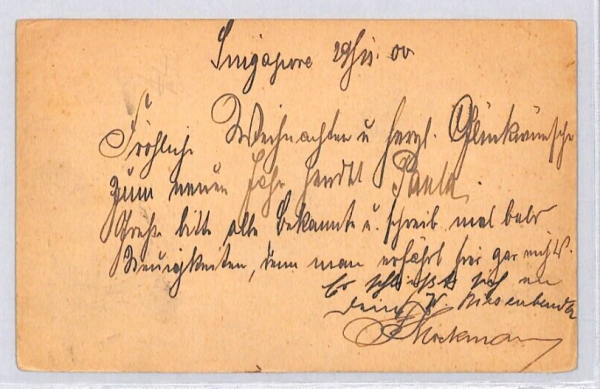 Singapore 29/11.00
Fröhliche Weihnachten u herzl. Glückwünsche
zum neuen Jahr sendet Paula.
Grüße bitte alle Bekannte u. schreib mal
Neuigkeiten, denn man erfährt hier gar nichts.
Es schließt sich an
Dein W.